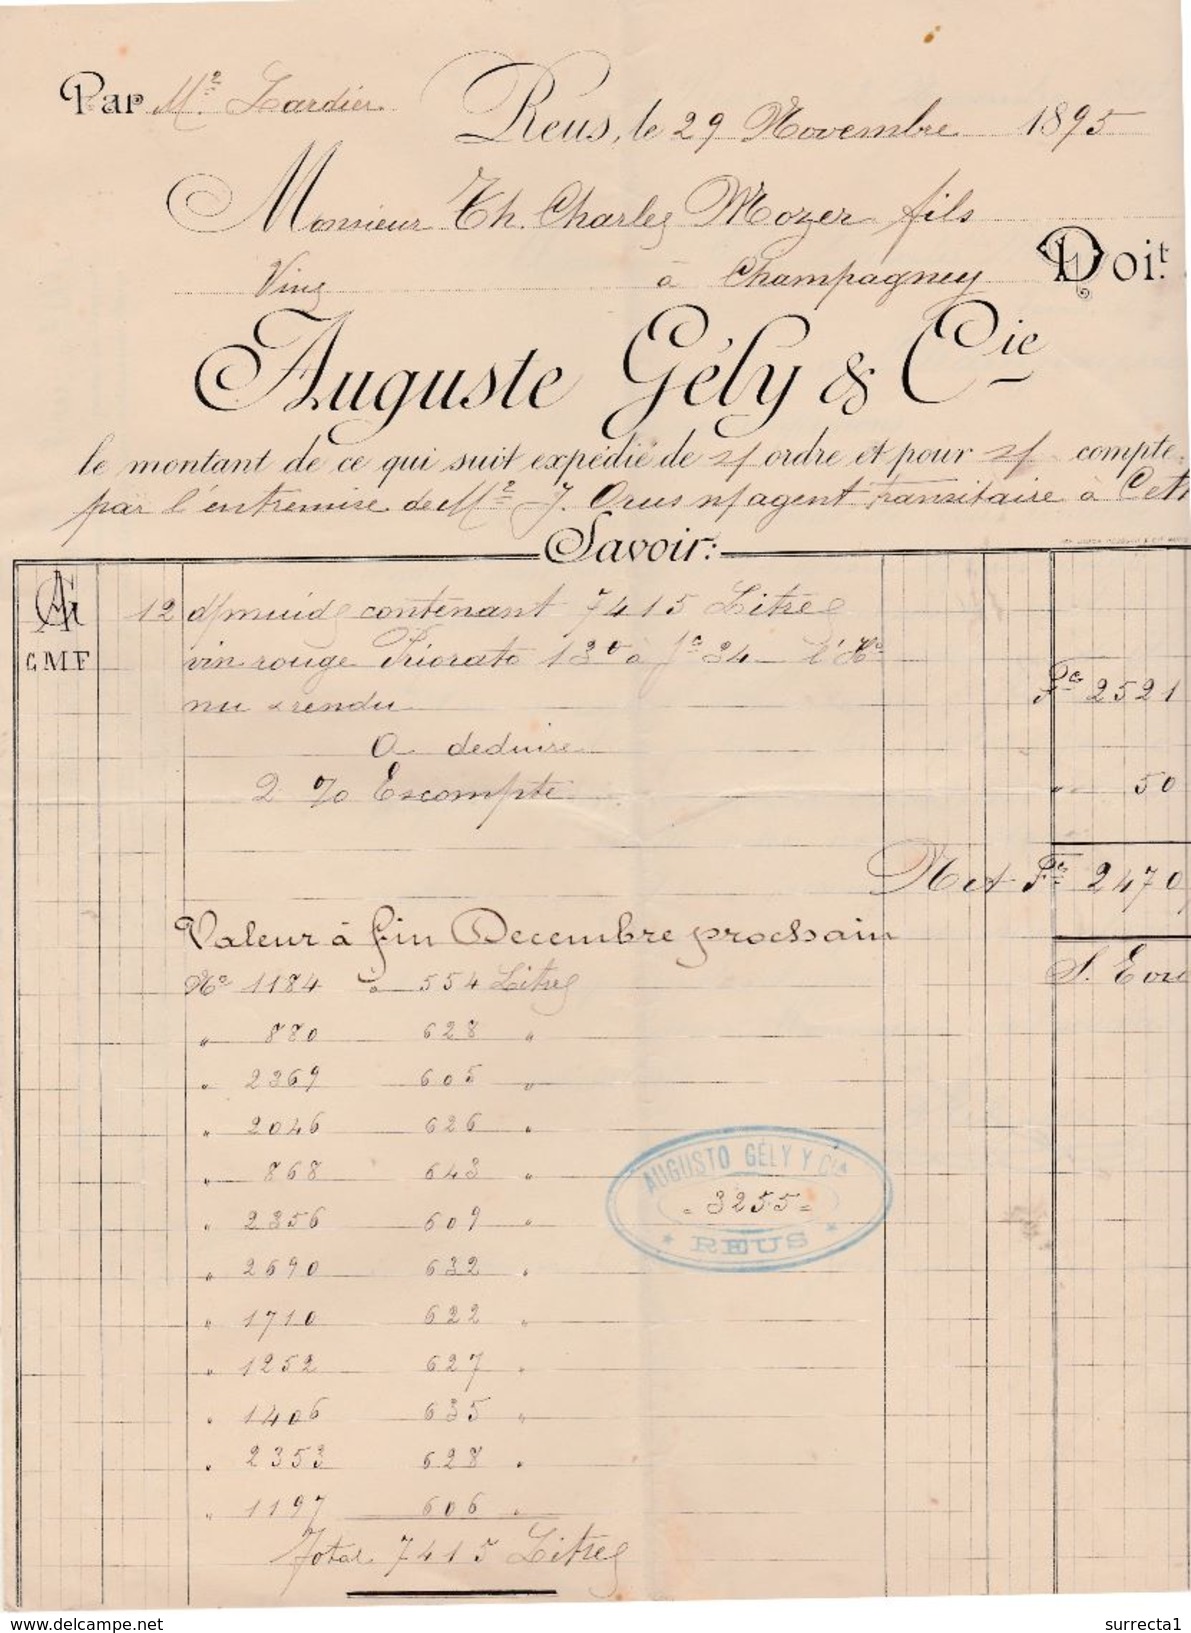 Par Mr. Lardier
Reus, le 29 Novembre 1895
Monsieur Th. Charles Mozer fils
Vins à Champagney Doit.
Auguste Gély & Cie
le montant de ce qui suit expédié de s/ ordre et pour s/ compte.
par l'entremise de Mr J. Orus n/agent transitaire à Cett
Savoir:
AG 12 d/muids contenant 7415 Litres
C.M.F vin rouge Priorato 13° à fcs 34 l'Ho
nu & rendu Fcs 2521
A deduire
2 % Escompte " 50
Net Fcs 2470
Valeur à fin Decembre prochain
No 1184 à 554 Litres S. E ou
" 880 628 "
" 2369 605 "
" 2046 626 "
" 868 643 "
" 2356 609 "
" 2690 632 "
" 1710 622 "
" 1252 627 "
" 1406 635 "
" 2353 628 "
" 1197 606 "
Total 7415 Litres
AUGUSTO GÉLY Y Cia
3255
REUS
delcampe.net
surrecta1